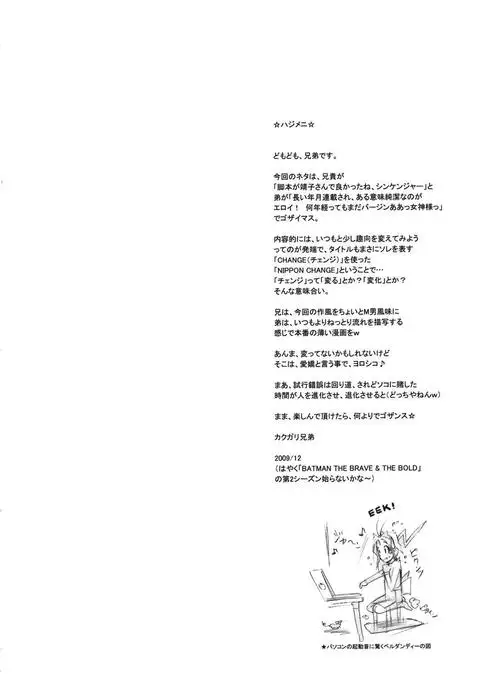 ☆ハジメニ☆
どもども、兄弟です。
今回のネタは、兄貴が
「脚本が靖子さんで良かったね、シンケンジャー」と
弟が「長い年月連載され、ある意味純潔なのが
エロイ！ 何年経ってもまだバージンああっ女神様っ」
でゴザイマス。
内容的には、いつもと少し趣向を変えてみよう
ってのが発端で、タイトルもまさにソレを表す
「CHANGE（チェンジ）」を使った
「NIPPON CHANGE」ということで…
「チェンジ」って「変る」とか？「変化」とか？
そんな意味合い。
兄は、今回の作風をちょいとM男風味に
弟は、いつもよりねっとり流れを描写する
感じで本番の薄い漫画をw
あんま、変ってないかもしれないけど
そこは、愛嬌と言う事で、ヨロシコ♪
まあ、試行錯誤は回り道、されどソコに賭した
時間が人を進化させ、退化させると（どっちやねんw）
まま、楽しんで頂けたら、何よりでゴザンス☆
カクガリ兄弟
2009/12
（はやく「BATMAN THE BRAVE & THE BOLD」
の第2シーズン始らないかな〜）
EEK!
★パソコンの起動音に驚くベルダンディーの図